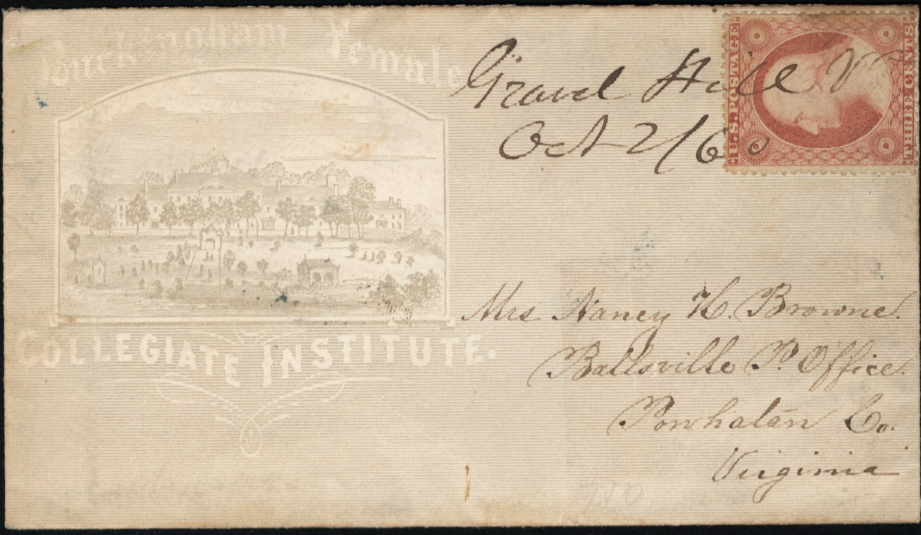 Buckingham Female
COLLEGIATE INSTITUTE.
Gravel Hill Va
Oct 2/60
U.S. POSTAGE
THREE CENTS
Mrs Nancy H. Browne.
Ballsville P. Office.
Powhatan Co.
Virginia